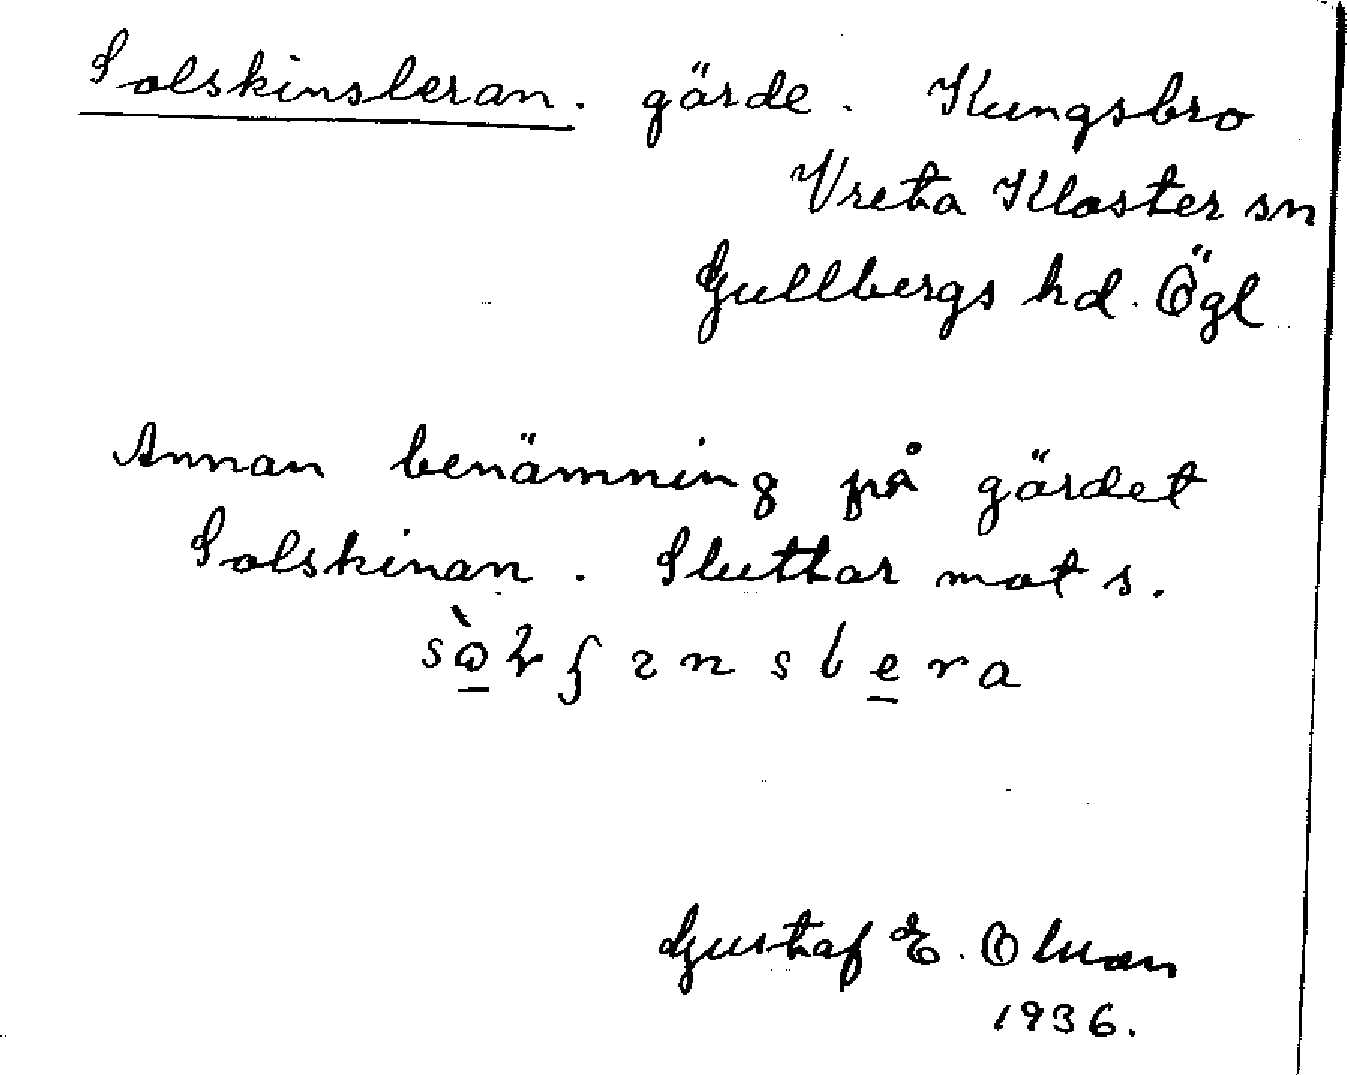 Solskinsleran. gärde. Kungsbro
Vreta Kloster sn
Gullbergs hd. Ögl
Annan benämning på gärdet
Solskinan. Sluttar mot s.
Gustaf E. Olman
1936.